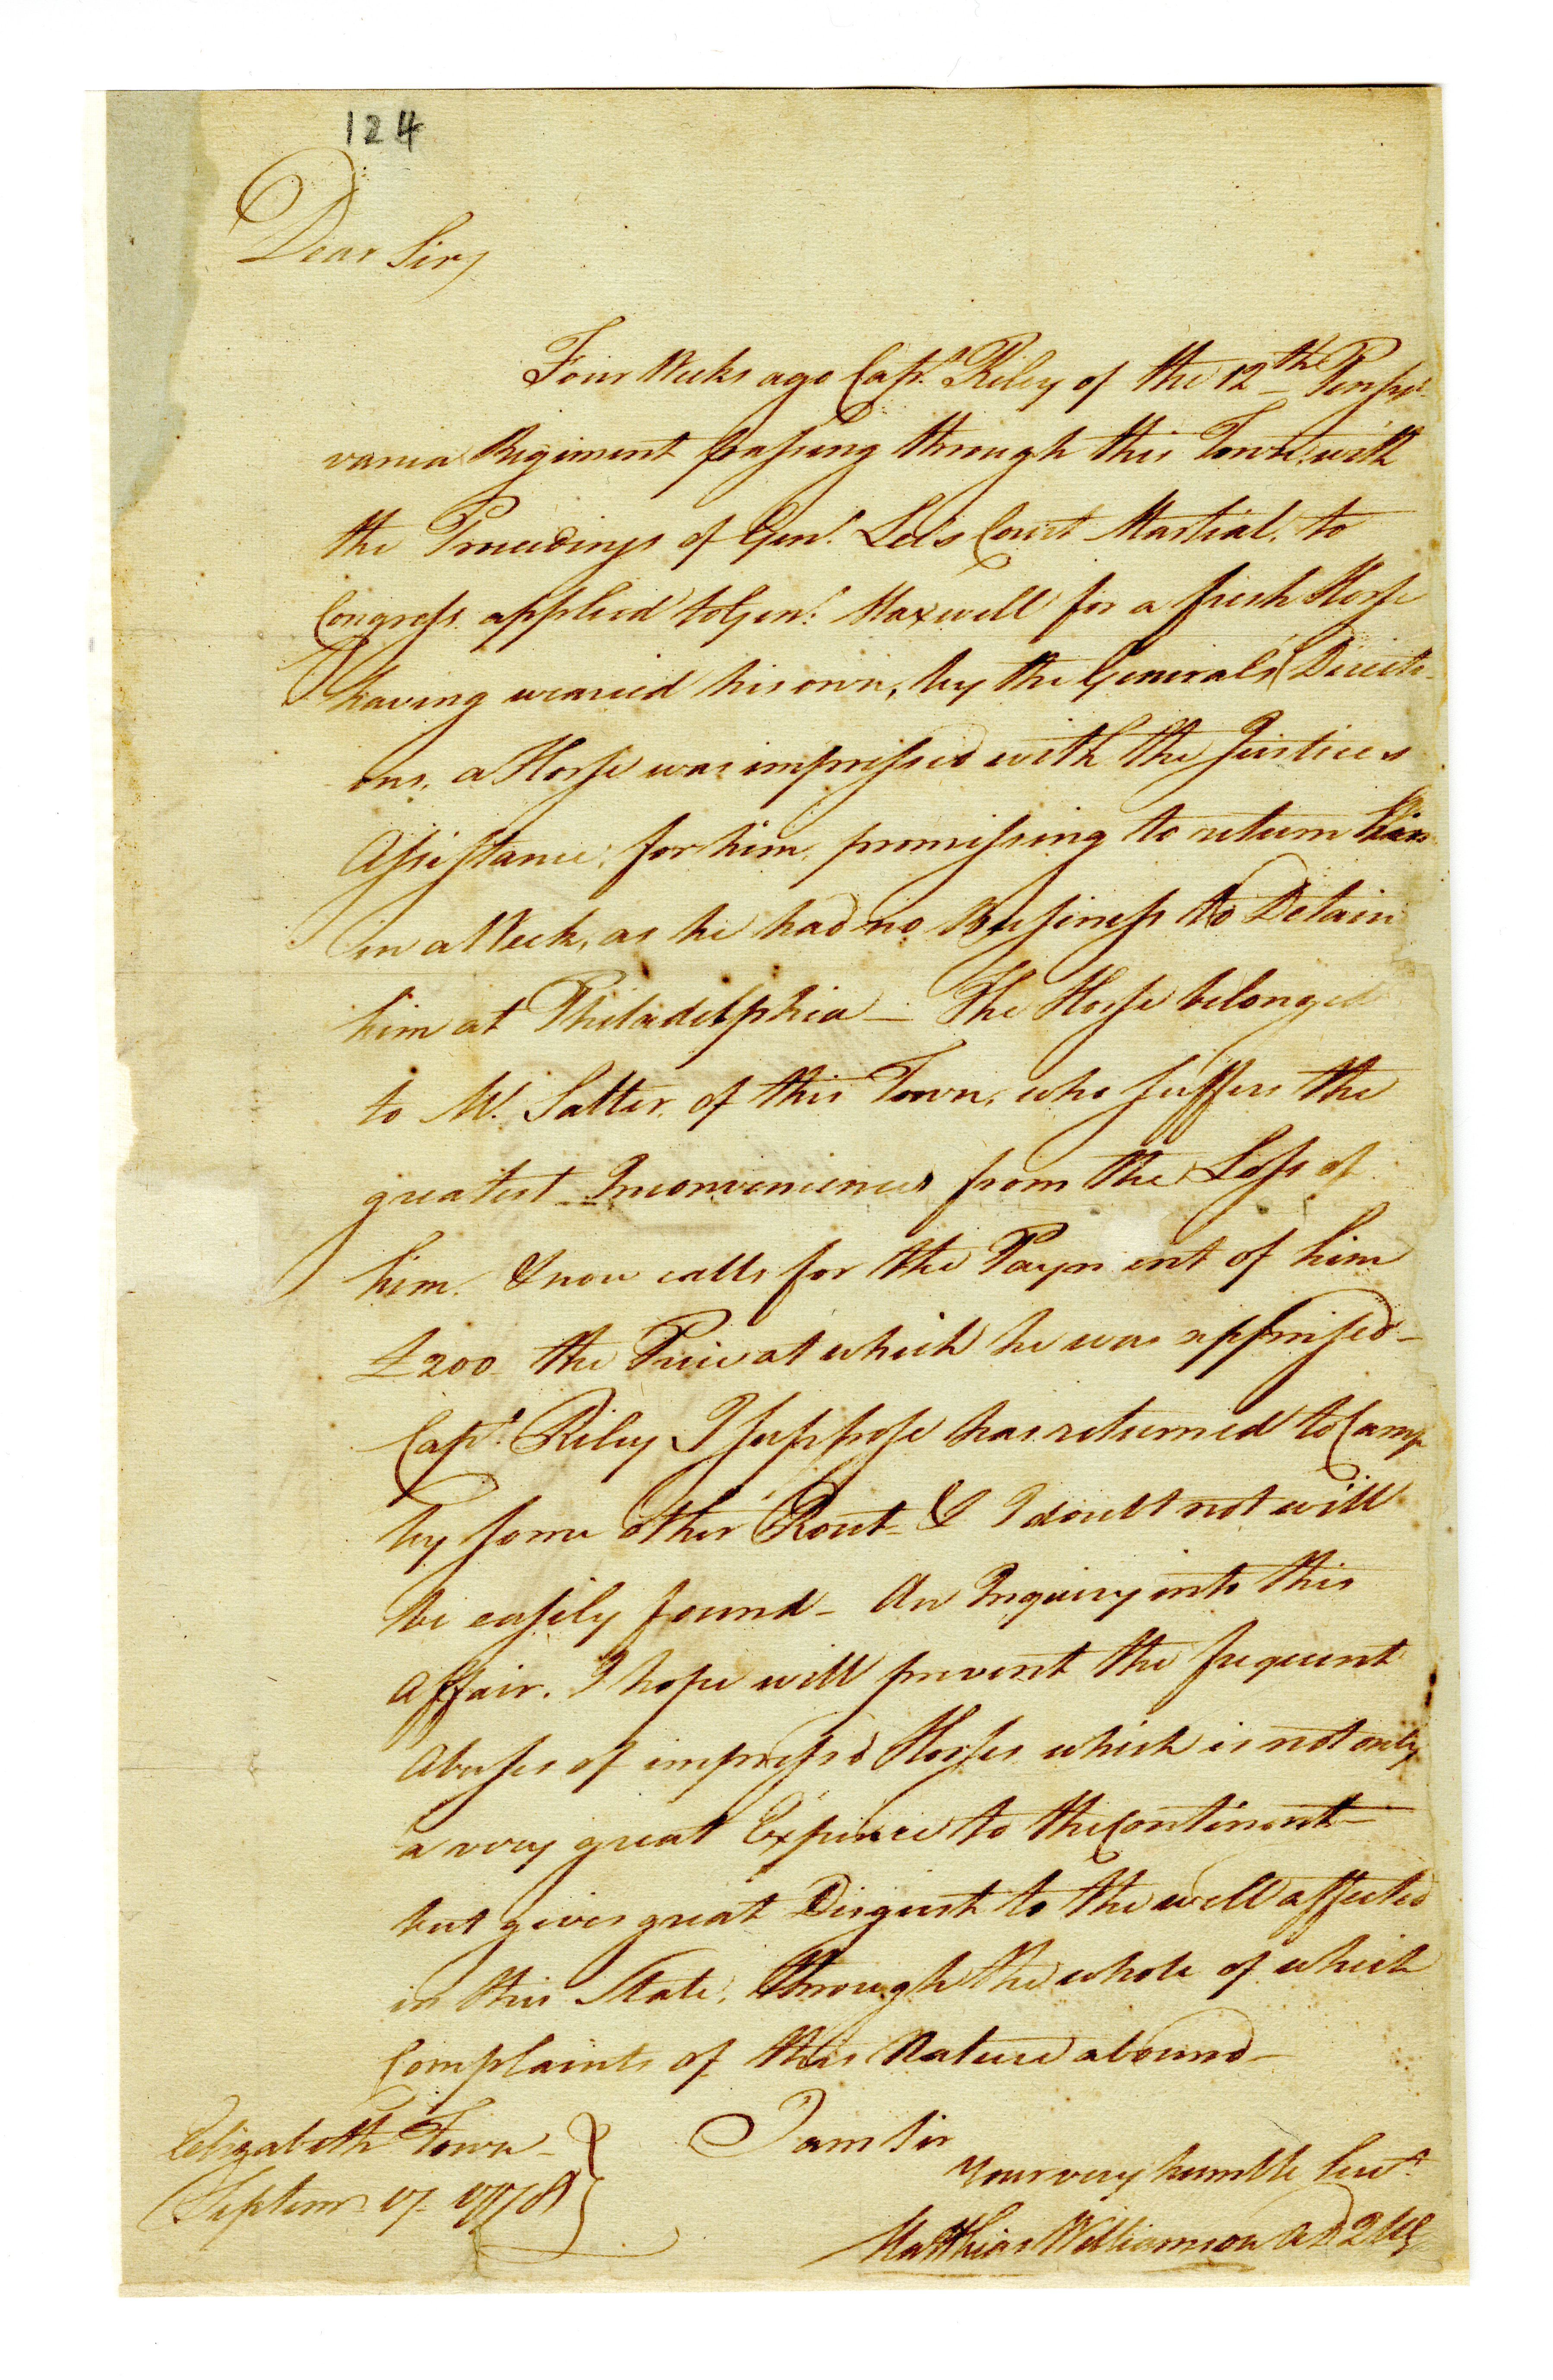 124
Dear Sir,
Four Weeks ago Capt. Riley of the 12th Pensyl-
vania Regiment passing through this Town, with
the Proceedings of Genl. Lee's Court Martial, to
Congress applied to Genl. Maxwell for a fresh Horse
having wearied his own, by the General's Directi-
ons, a Horse was impressed with the Justices
Assistance, for him, promissing to return him
in a Week, as he had no Business to Detain
him at Philadelphia — The Horse belonged
to Mr. Salter, of this Town, who suffers the
greatest Inconveniences from the Loss of
him. & now calls for the Payment of him
£200 the Price at which he was apprised —
Capt. Riley I suppose has returned to Camp
by some other Rout — & I doubt not will
be easily found — An Inquiry into this
Affair, I hope will prevent the frequent
Abuses of impress'd Horses which is not only
a very great Expence to the Continent —
but gives great Disgust to the well affected
in this State, through the whole of which
Complaints of this Nature abound —
I am Sir
Elizabeth Town —
Your very humble Servt.
Septem. 17. 1778
Matthias Williamson A D Q M G